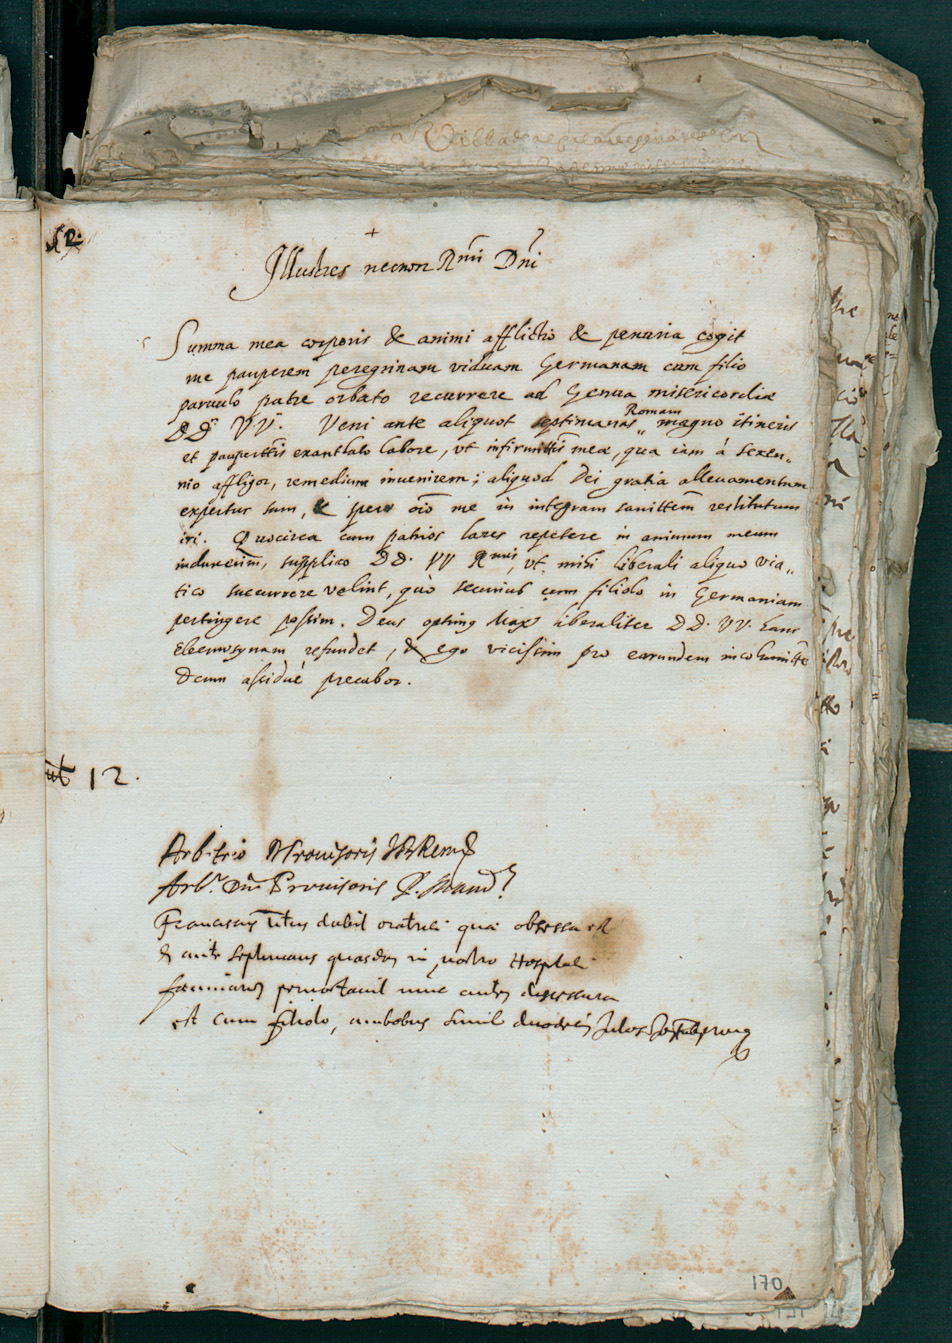 12.
+
Illustres necnon Rmi Dni
Summa mea corporis & animi afflictio & penuria cogit
me pauperem peregrinam viduam Germanam cum filio
paruulo patre orbato recurrere ad Genua misericordiæ
DD. VV. Veni ante aliquot septimanas Romam magno itineris
et paupertis exantlato labore, vt infirmittis meæ, qua iam á sexen„
nio affligor, remedium inuenirem; aliquod Dei gratia alleuamentum
experta sum, & spero oio me in integram sanittem restitutum
iri. Quocirca cum patrios lares repetere in animum meum
induxerim, supplico DD. VV Rmis, vt mihi liberali aliquo via„
tico succurrere velint, quò securius cum filiolo in Germaniam
pertingere possim. Deus optimus Max liberaliter DD. VV. hanc
Eleemosynam refundet, & ego vicissim pro earundem incolumitte
Deum assiduè precabor.
12.
Arbitrio Prouisoris
Arb. Dni Prouisoris
Franciscus dabit oratrici quæ obsessa est
& ante septimanas quasdam in nostro Hospitali
pernoctauit nunc autem discessura
est cum filiolo, ambobus simul Julios
170